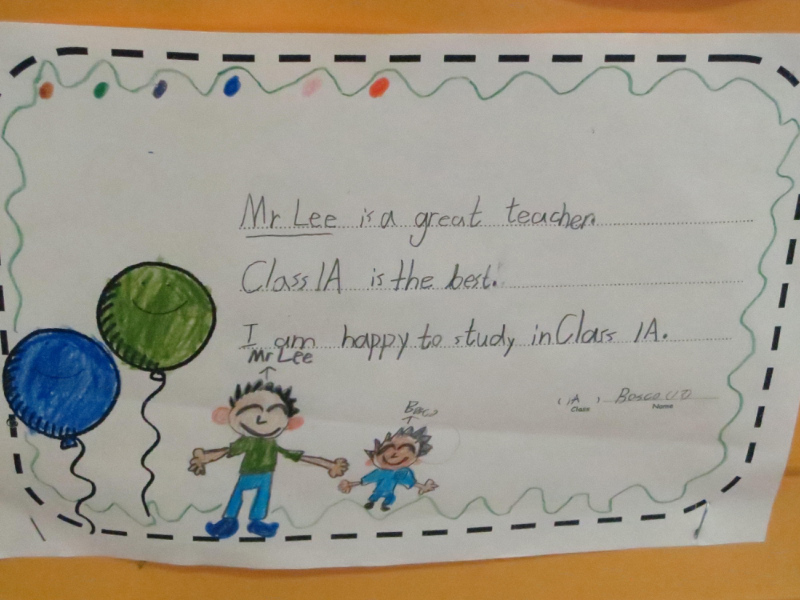 Mr Lee is a great teacher.
Class 1A is the best.
I am happy to study in Class 1A.
Mr Lee
( 1A ) Bosco
Class Name